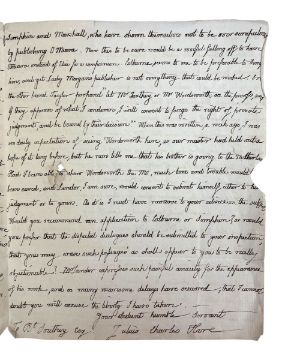 Simpkin and Marshall, who have shewn themselves not to be over scrupulous
by publishing O'Meara. Now this to be sure would be a woeful falling off to have
instead of this for a conference. Colburn seems to me to be preferable to
him; and yet Lady Morgan's publisher is not everything that could be wished. On
the other hand Taylor perhaps if Mr Southey or Mr Wordsworth on the proofs say
they approve of what Landor, will consent to forgo the right of private
judgement, and be bound by their decision. When this was written, a week ago, I was
in daily expectation of seeing Wordsworth here, as our master had held out
hope of it long before, but he now tells me that his brother is going to the Netherlands
Wordsworth the MS, much time and trouble would
been saved, and Landor, I am sure, would consent to submit himself either to his
judgement or to yours. As it is I must have recourse to your advice on this subject.
Would you recommend an application to Colburn or Simpkin, or would
you prefer that the disputed dialogues should be submitted to your inspection
that you may such passages as shall appear to you to be really
objectionable? Mr Landor expresses such painful anxiety for the appearance
of his work, and so many vexatious delays have occurred, that I cannot
doubt you will excuse the liberty I have taken.
Your obedient humble Servant
To Rt Southey esq. Julius Charles Hare.